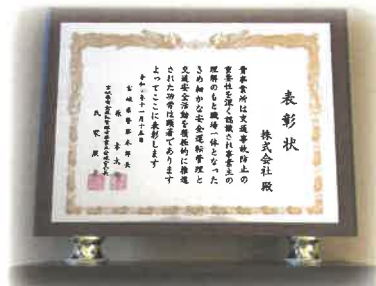 表彰状
株式会社 殿
貴事業所は交通事故防止の
重要性を深く認識され事業主の
理解のもと職場一体となった
きめ細かな安全運転管理と
交通安全活動を積極的に推進
された功労は顕著であります
よってここに表彰します
令和 年十一月十五日
宮城県警察本部長